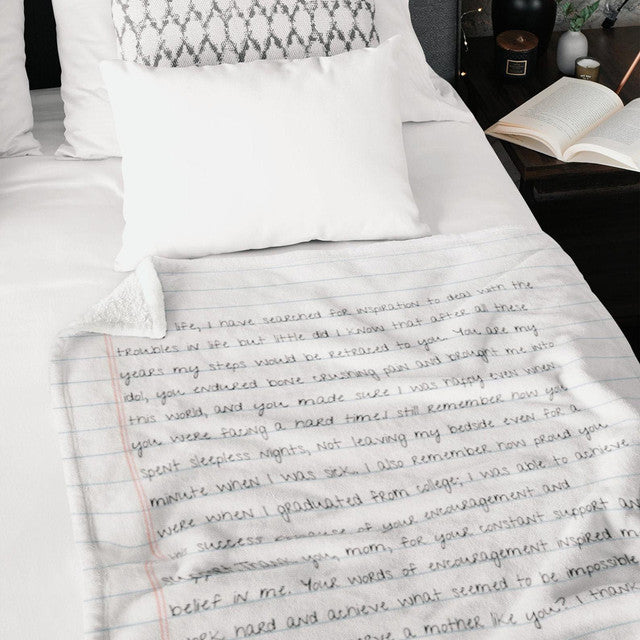 life, I have searched for inspiration to deal with the
troubles in life but little did I know that after all these
years my steps would be retraced to you. You are my
idol, you endured bone crushing pain and brought me into
this world, and you made sure I was happy even when
you were facing a hard time! still remember how you
spent sleepless nights, not leaving my bedside even for a
minute when I was sick. I also remember how proud you
were when I graduated from college; I was able to achieve
success of your encouragement and
you, mom, for your constant support and
belief in me. Your words of encouragement inspired me
hard and achieve what seemed to be impossible
a mother like you? I thank